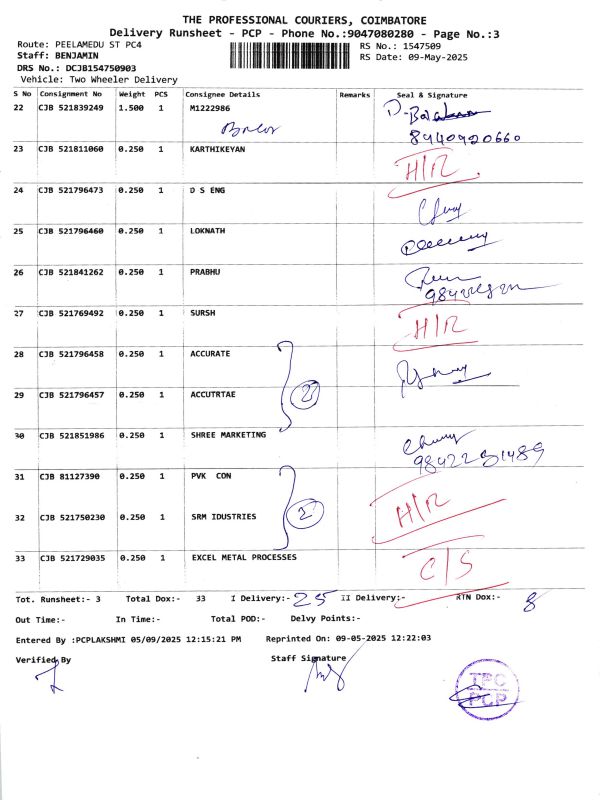 THE PROFESSIONAL COURIERS, COIMBATORE
Delivery Runsheet - PCP - Phone No.:9047080280 - Page No.:3
Route: PEELAMEDU ST PC4 RS No.: 1547509
Staff: BENJAMIN RS Date: 09-May-2025
DRS No.: DCJB154750903
Vehicle: Two Wheeler Delivery
S No Consignment No Weight PCS Consignee Details Remarks Seal & Signature
22 CJB 521839249 1.500 1 M1222986
8940920660
23 CJB 521811060 0.250 1 KARTHIKEYAN H/R
24 CJB 521796473 0.250 1 D S ENG
25 CJB 521796460 0.250 1 LOKNATH
26 CJB 521841262 0.250 1 PRABHU
27 CJB 521769492 0.250 1 SURSH H/R
28 CJB 521796458 0.250 1 ACCURATE
29 CJB 521796457 0.250 1 ACCUTRTAE 2
30 CJB 521851986 0.250 1 SHREE MARKETING
31 CJB 81127390 0.250 1 PVK CON
32 CJB 521750230 0.250 1 SRM IDUSTRIES 2 H/R
33 CJB 521729035 0.250 1 EXCEL METAL PROCESSES C/S
Tot. Runsheet:- 3 Total Dox:- 33 I Delivery:- 25 II Delivery:- RTN Dox:- 8
Out Time:- In Time:- Total POD:- Delvy Points:-
Entered By :PCPLAKSHMI 05/09/2025 12:15:21 PM Reprinted On: 09-05-2025 12:22:03
Verified By Staff Signature
TPC
PCP